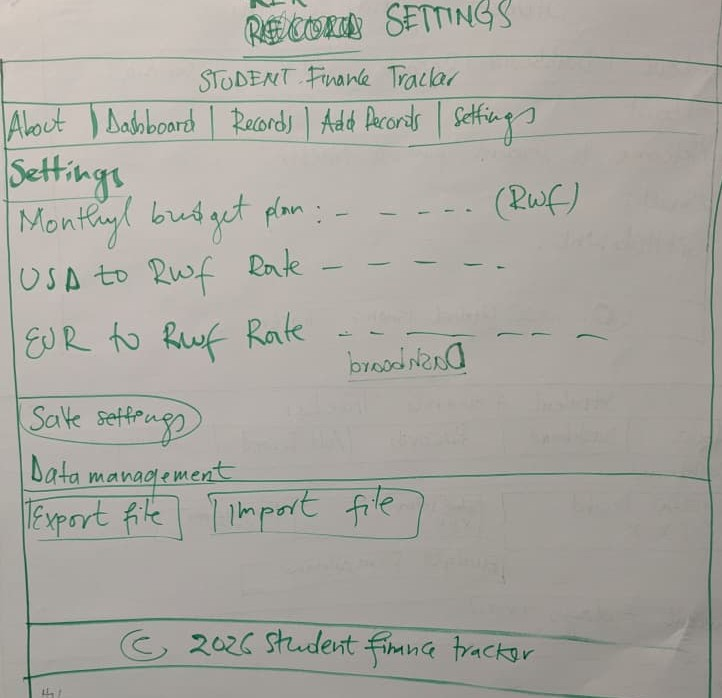 SETTINGS
STUDENT Finance Tracker
About | Dashboard | Records | Add Records | Settings
Settings
Monthyl budget plan : - - - - - (Rwf)
USD to Rwf Rate - - - - -
EUR to Rwf Rate - - - - - -
Dashboard
Save settings
Data management
Export file Import file
© 2026 Student finance tracker